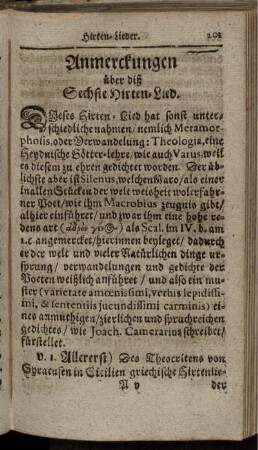 Hirten-Lieder. 201
Anmerckungen
über diß
Sechste Hirten-Lied.
DIeses Hirten-Lied hat sonst unter-
schiedliche nahmen / nemlich Metamor-
phosis, oder Verwandelung: Theologia, eine
Heydnische Götter-lehre, wie auch Varus, weil
es diesem zu ehren gedichtet worden. Der üb-
lichste aber ist Silenus, welchen Maro / als einer
in allen Stücken der welt weisheit wolerfahr-
ner Poet / wie ihm Macrobius zeugnis gibt /
alhier einführet / und zwar ihm eine hohe re-
dens art () als Scal. im IV. b. am
1. c. angemercket / hierinnen beyleget / dadurch
er der welt und vieler Natürlichen dinge ur-
sprung / verwandelungen und gedichte der
Poeten weißlich anführet / und also ein mu-
ster (varietate amœnissimi, verbis lepidissi-
mi, & sententiis jucundissimi carminis) ei-
nes anmuthigen / zierlichen und spruchreichen
gedichtes / wie Joach. Camerarius schreibet /
fürstellet.
v. 1. Allererst) Des Theocritens von
Syracusen in Sicilien griechische Hirtenlie-
N v der